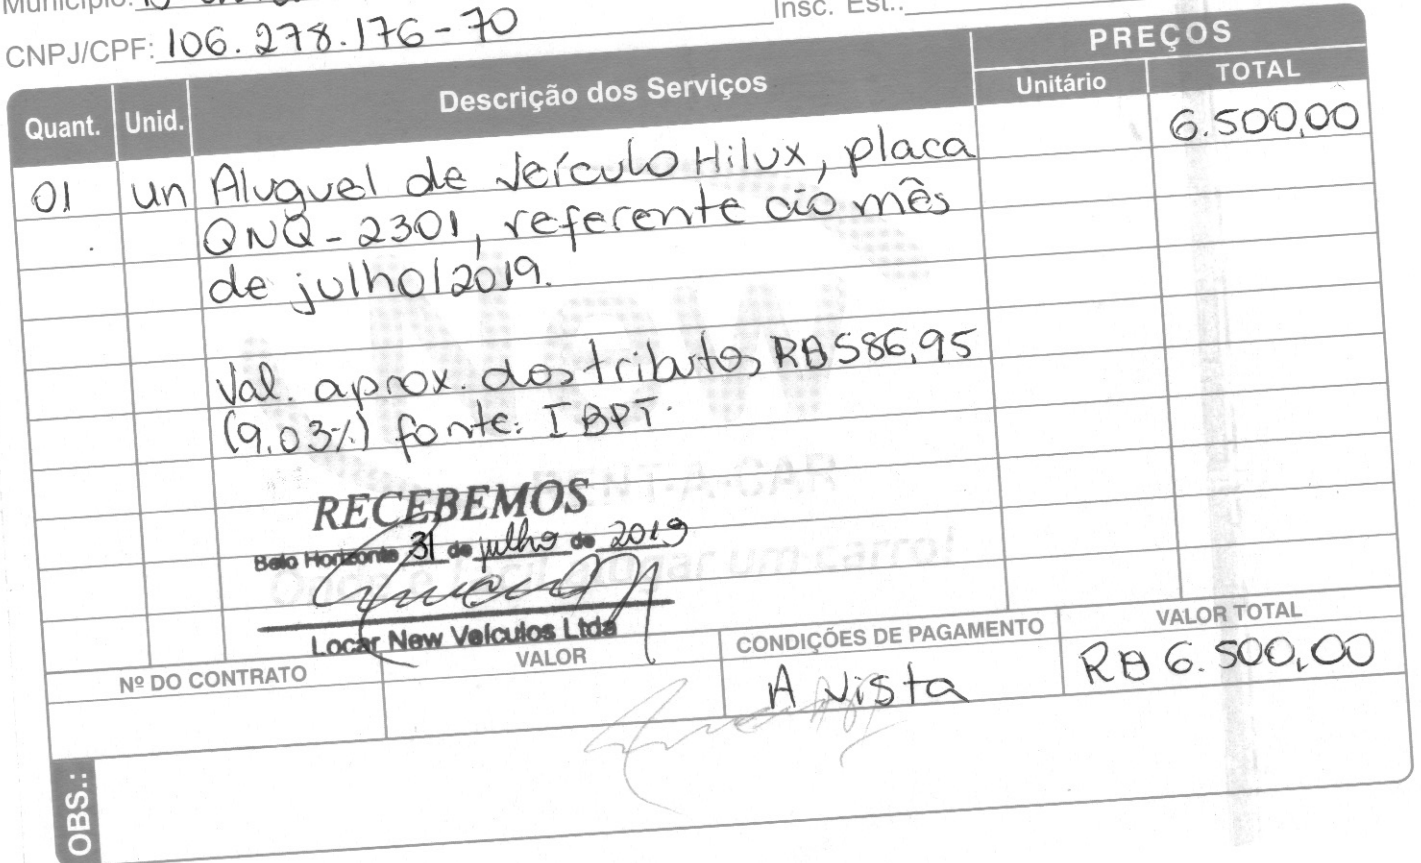 Município:
CNPJ/CPF: 106.278.176-70
Insc. Est.:
Quant. Unid. Descrição dos Serviços PREÇOS
Unitário TOTAL
6.500,00
01 un Aluguel de veículo Hilux, placa
QNQ-2301, referente ao mês
de julho/2019.
Val. aprox. dos tributos R$586,95
(9.03%) fonte: IBPT.
RENT-A-CAR
RECEBEMOS
Belo Horizonte 31 de julho de 2019
um carro!
Locar New Veículos Ltda
Nº DO CONTRATO VALOR CONDIÇÕES DE PAGAMENTO VALOR TOTAL
A vista R$ 6.500,00
OBS.: